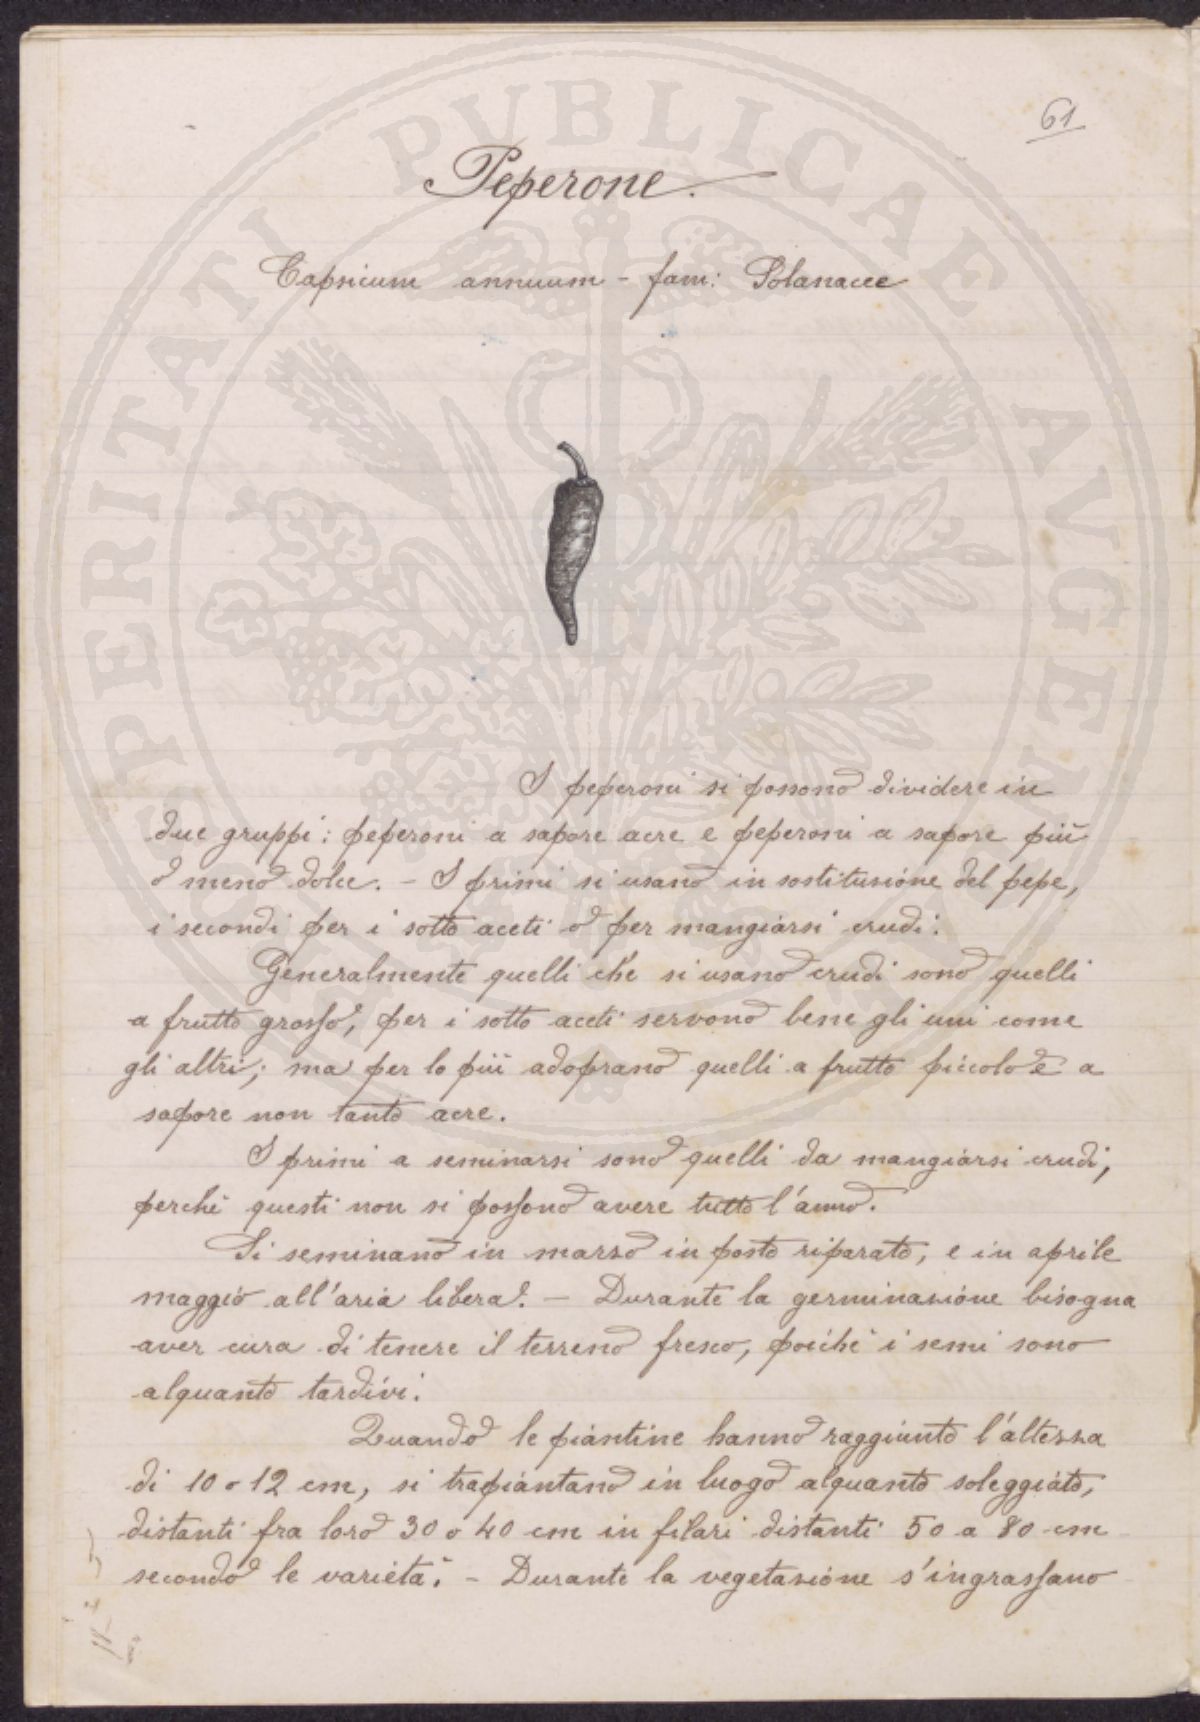 61
Peperone.
Capsicum annuum - fam: Solanacee
I peperoni si possono dividere in
due gruppi: peperoni a sapore acre e peperoni a sapore più
o meno dolce. - I primi si usano in sostituzione del pepe,
i secondi per i sotto aceti o per mangiarsi crudi.
Generalmente quelli che si usano crudi sono quelli
a frutto grosso, per i sotto aceti servono bene gli uni come
gli altri; ma per lo più adoprano quelli a frutto piccolo e a
sapore non tanto acre.
I primi a seminarsi sono quelli da mangiarsi crudi,
perché questi non si possono avere tutto l'anno.
Si seminano in marzo in posto riparato, e in aprile
maggio all'aria libera. - Durante la germinazione bisogna
aver cura di tenere il terreno fresco, poiché i semi sono
alquanto tardivi.
Quando le piantine hanno raggiunto l'altezza
di 10 o 12 cm, si trapiantano in luogo alquanto soleggiato,
distanti fra loro 30 o 40 cm in filari distanti 50 a 80 cm
secondo le varietà. - Durante la vegetazione s'ingrassano
PROSPERITATI PUBLICAE AUGENDAE